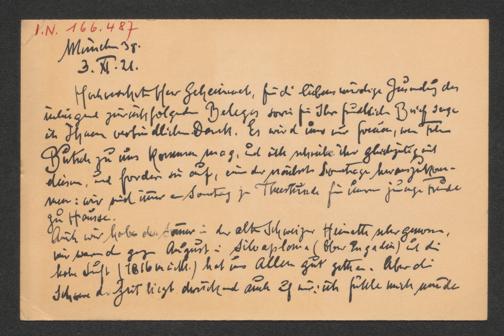 I.N. 166.487
München 38.
3. XI. 21.
Hochverehrter Herr Geheimrat, für die liebenswürdige Zusendung des
zurückfolgenden Beleges sowie für Ihren Brief sage
ich Ihnen verbindlichen Dank. Es wird uns nur freuen, wenn
zu uns kommen mag, und ich schreibe ihr gleichzeitig mit
diesem, und fordere sie auf, an einem der nächsten Sonntage herauszukom-
men: wir sind immer am Sonntag zur Theestunde für unsere junge Freunde
zu Hause.
Auch wir haben den Sommer in der alten Schweizer Heimat,
wir waren gegen August in Silvaplana (Ober Engadin) und die
hohe Luft (1816 m) hat uns Allen gut gethan. Aber die
Schwere der Zeit liegt drückend auch auf mir: ich fühle mich